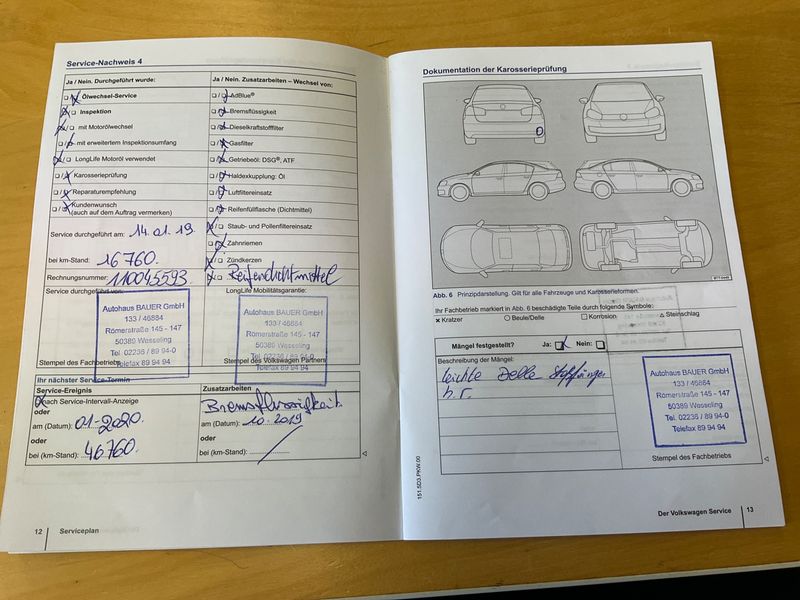 Service-Nachweis 4
Ja / Nein. Durchgeführt wurde:
Ölwechsel-Service
Inspektion
mit Motorölwechsel
mit erweitertem Inspektionsumfang
LongLife Motoröl verwendet
Karosserieprüfung
Reparaturempfehlung
Kundenwunsch
(auch auf dem Auftrag vermerken)
Service durchgeführt am: 14.01.19
bei km-Stand: 16760.
Rechnungsnummer: 110045593
Service durchgeführt von:
Autohaus BAUER GmbH
133 / 46884
Römerstraße 145 - 147
50389 Wesseling
Tel. 02236 / 89 94-0
Telefax 89 94 94
Stempel des Fachbetriebs
Ja / Nein. Zusatzarbeiten – Wechsel von:
AdBlue®
Bremsflüssigkeit
Dieselkraftstofffilter
Gasfilter
Getriebeöl: DSG®, ATF
Haldexkupplung: Öl
Luftfiltereinsatz
Reifenfüllflasche (Dichtmittel)
Staub- und Pollenfiltereinsatz
Zahnriemen
Zündkerzen
Reifendichtmittel
LongLife Mobilitätsgarantie:
Autohaus BAUER GmbH
133 / 46884
Römerstraße 145 - 147
50389 Wesseling
Tel. 02236 / 89 94-0
Telefax 89 94 94
Stempel des Volkswagen Partners
Ihr nächster Service-Termin
Service-Ereignis
nach Service-Intervall-Anzeige
oder
am (Datum): 01-2020.
oder
bei (km-Stand): 46760.
Zusatzarbeiten
Bremsflüssigkeit
am (Datum): 10-2019
oder
bei (km-Stand):
12 Serviceplan
Dokumentation der Karosserieprüfung
Abb. 6 Prinzipdarstellung. Gilt für alle Fahrzeuge und Karosserieformen.
Ihr Fachbetrieb markiert in Abb. 6 beschädigte Teile durch folgende Symbole:
× Kratzer ○ Beule/Delle □ Korrosion △ Steinschlag
Mängel festgestellt? Ja: Nein:
Beschreibung der Mängel:
leichte Delle Stoßfänger
h.r.
Autohaus BAUER GmbH
133 / 46884
Römerstraße 145 - 147
50389 Wesseling
Tel. 02236 / 89 94-0
Telefax 89 94 94
Stempel des Fachbetriebs
151.5D3.PKW.00
Der Volkswagen Service 13